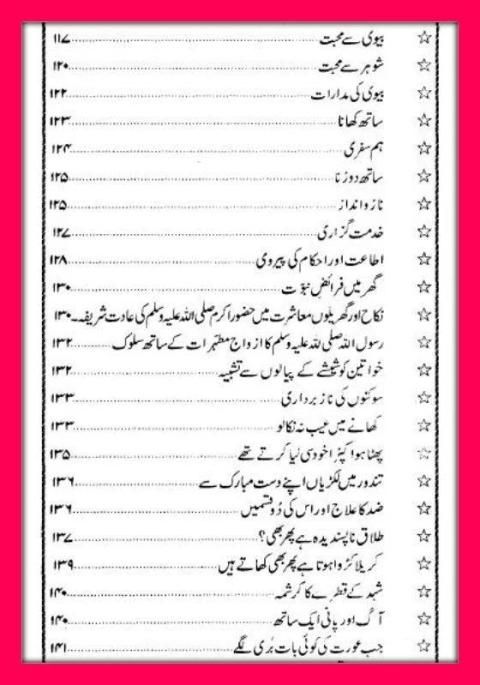 ☆ بیوی سے محبت ۱۱۷
☆ شوہر سے محبت ۱۲۰
☆ بیوی کی مدارات ۱۲۲
☆ ساتھ کھانا ۱۲۳
☆ ہم سفری ۱۲۴
☆ ساتھ دوڑنا ۱۲۵
☆ ناز و انداز ۱۲۵
☆ خدمت گزاری ۱۲۷
☆ اطاعت اور احکام کی پیروی ۱۲۸
☆ گھر میں فرائض نبوّت ۱۳۰
☆ نکاح اور گھریلوں معاشرت میں حضور اکرم صلی اللہ علیہ وسلم کی عادت شریفہ ۱۳۰
☆ رسول اللہ صلی اللہ علیہ وسلم کا ازواج مطہرات کے ساتھ سلوک ۱۳۲
☆ خواتین کو شیشے کے پیالوں سے تشبیہ ۱۳۲
☆ سوکنوں کی ناز برداری ۱۳۳
☆ کھانے میں عیب نہ نکالو ۱۳۳
☆ پھٹا ہوا کپڑا خود سی لیا کرتے تھے ۱۳۵
☆ تندور میں لکڑیاں اپنے دست مبارک سے ۱۳۶
☆ ضد کا علاج اور اس کی دُو قسمیں ۱۳۶
☆ طلاق ناپسندیدہ ہے پھر بھی؟ ۱۳۷
☆ کریلا کڑوا ہوتا ہے پھر بھی کھاتے ہیں ۱۳۹
☆ شہد کے قطرے کا کرشمہ ۱۴۰
☆ آگ اور پانی ایک ساتھ ۱۴۰
☆ جب عورت کی کوئی بات بُری لگے ۱۴۱